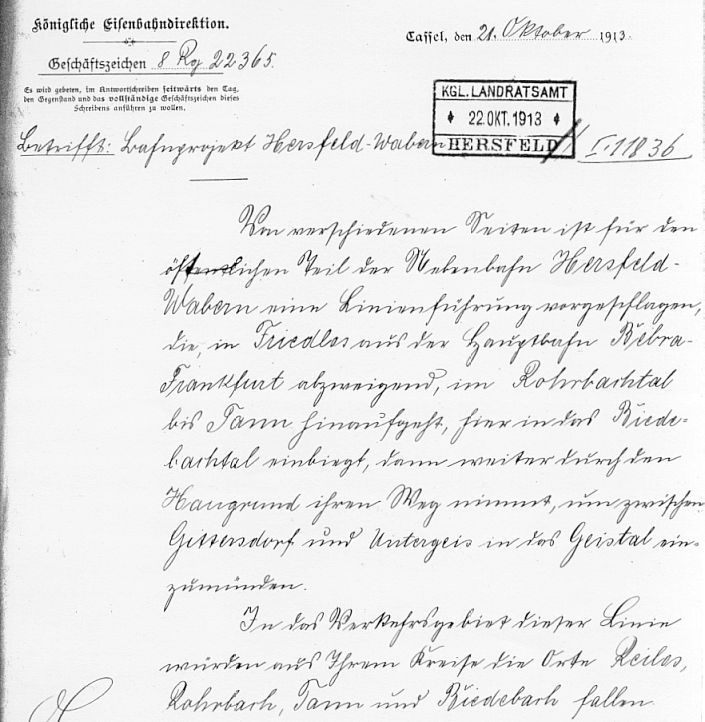 Königliche Eisenbahndirektion.
Geschäftszeichen 8 Rg 22365.
Es wird gebeten, im Antwortschreiben seitwärts den Tag,
den Gegenstand und das vollständige Geschäftszeichen dieses
Schreibens anführen zu wollen.
Cassel, den 21. Oktober 1913.
KGL. LANDRATSAMT
22. OKT. 1913
HERSFELD
I. 11836
Betrifft: Bahnprojekt Hersfeld-Wabern
Von verschiedenen Seiten ist für den
öftlichen Teil der Nebenbahn Hersfeld-
Wabern eine Linienführung vorgeschlagen,
die, in Friedlos aus der Hauptbahn Bebra-
Frankfurt abzweigend, im Rohrbachtal
bis Tann hinaufgeht, hier in das Biede-
bachtal einbiegt, dann weiter durch den
Haugrund ihren Weg nimmt, um zwischen
Gittersdorf und Untergeis in das Geistal ein-
zumünden.
In das Verkehrsgebiet dieser Linie
würden aus Ihrem Kreise die Orte Reilos,
Rohrbach, Tann und Biedebach fallen.